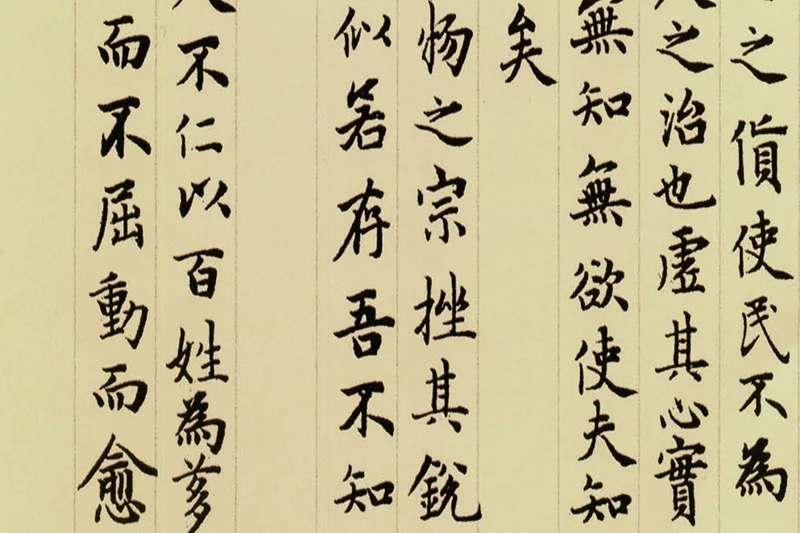 之貨使民不為
人之治也虛其心實
無知無欲使夫知
矣
物之宗挫其銳
似若存吾不知
人不仁以百姓為芻
而不屈動而愈